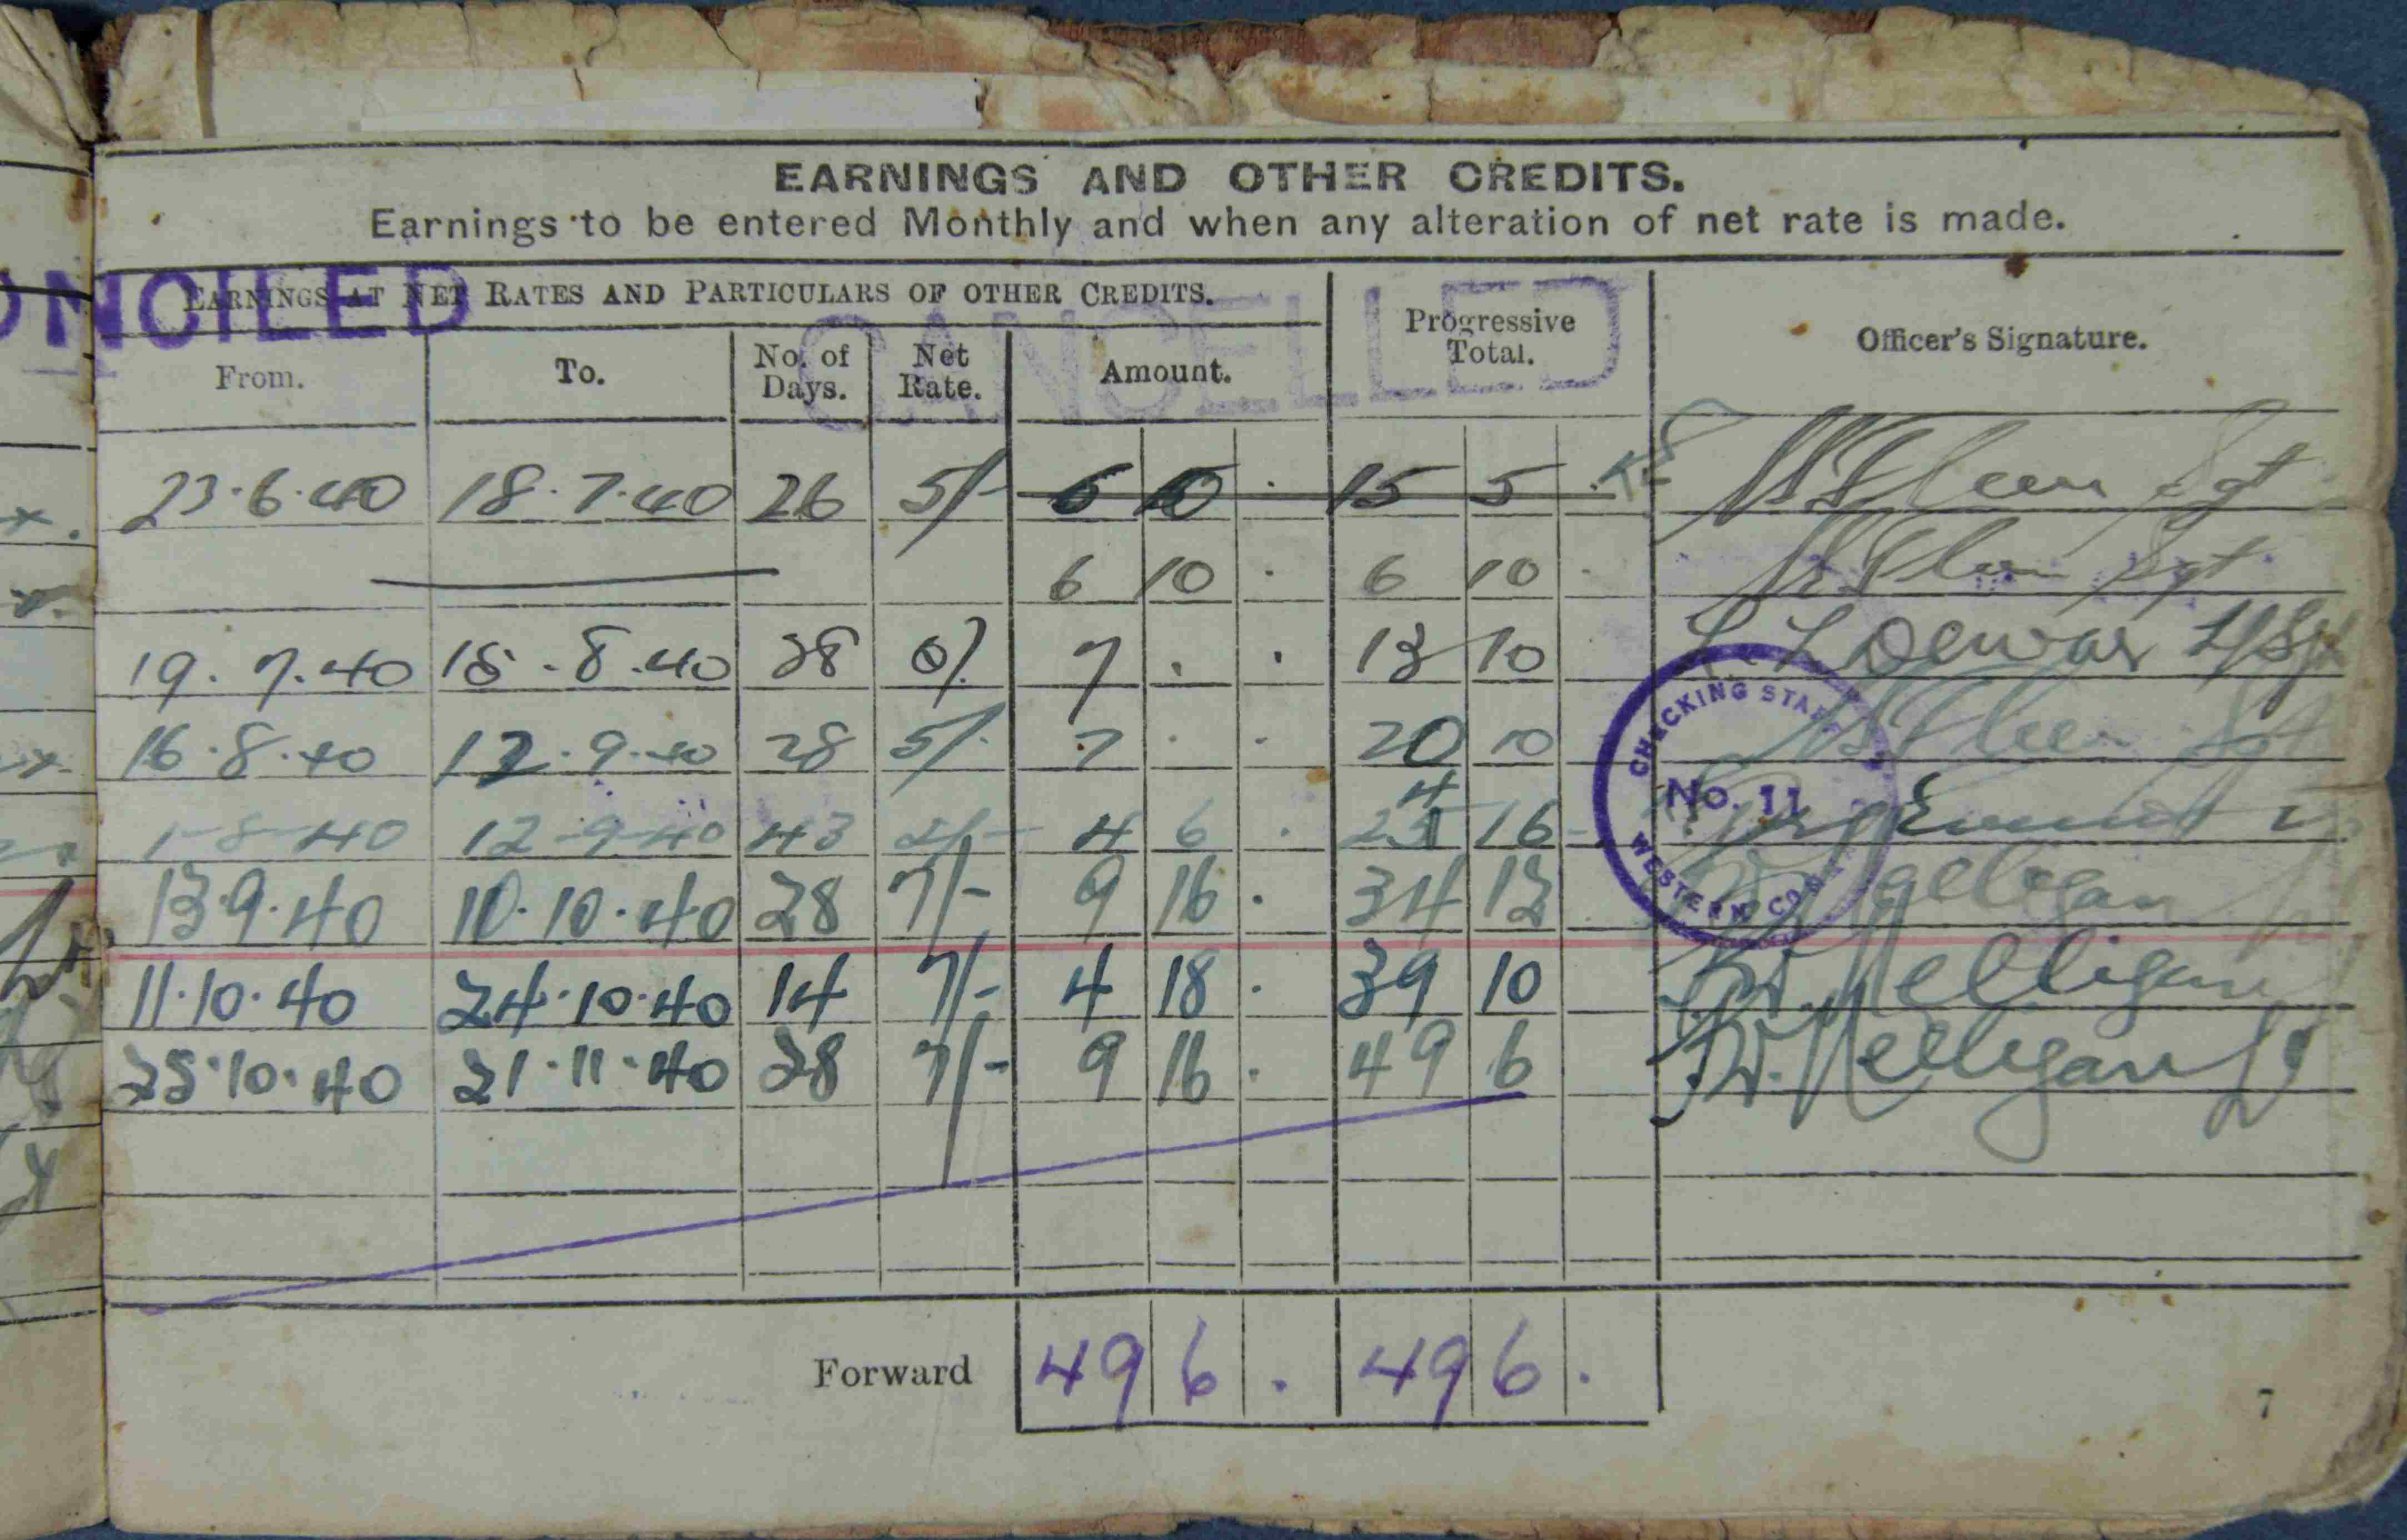 EARNINGS AND OTHER CREDITS.
Earnings to be entered Monthly and when any alteration of net rate is made.
ONCILED
EARNINGS AT NET RATES AND PARTICULARS OF OTHER CREDITS.
CANCELLED
From. To. No. of Days. Net Rate. Amount. Progressive Total. Officer's Signature.
23.6.40 18.7.40 26 5/- 6 10 . 15 5 . Sgt
6 10 . 6 10 . Sgt
19.7.40 15.8.40 28 5/. 7 . . 13 10 Dewar L/Sgt
16.8.40 12.9.40 28 5/. 7 . . 20 10
1-8-40 12-9-40 43 2/- 4 6 . 24 16
CHECKING STAFF
No. 11
WESTERN
13.9.40 10.10.40 28 7/- 9 16 . 34 12
11.10.40 24.10.40 14 7/- 4 18 . 39 10
25.10.40 21.11.40 28 7/- 9 16 . 49 6
Forward 49 6 . 49 6 .
7